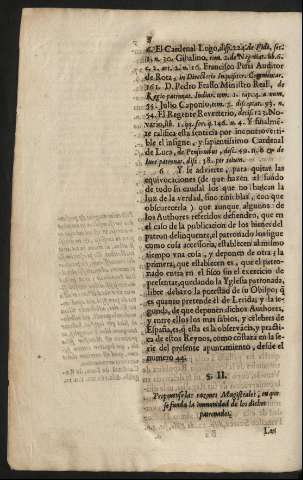 8
El Cardenal Lugo, disp. 24. de Fide, sec.
1. n. 20. Gibalino, tom. 2. de Negotiat. lib. 6.
c. 2. art. 2. n. 16. Francisco Peña Auditor
de Rota, in Directorio Inquisitor. Commentar.
161. D. Pedro Frasso Ministro Real, de
Regio patronat. Indiar. tom. 1.
Julio Caponio, tom. 5. discept. n.
54. El Regente Reverterio, decis. No-
vario, lib. 1. n. 4. Y finalmē-
te califica esta sentēcia por incontroverti-
ble el insigne, y sapientissimo Cardenal
de Luca, de Pensionibus, disc. n. 6. & de
iure patronat. disc. 38. per totum.
6 Y se advierte, para quitar las
equivocaciones (de que hazen al fundo
de todo su caudal los que no buscan la
luz de la verdad, sino tinieblas, con que
obscurecerla) que aunque algunos de
los Authores referidos defienden, que en
el caso de la publicacion de los bienes del
patron delinquente, al patronado los sigue
como cosa accessoria, establecen al mismo
tiempo vna cosa, y deponen de otra: la
primera, que establecen es, que el patro-
nado entra en el fisco sin el exercicio de
presentar, quedando la Yglesia patronada,
libre debaxo la potestad de su Obispo; q̃
es quanto pretende él de Lerida; y la se-
gunda, de que deponen dichos Authores,
y entre ellos los mas sabios, y celebres de
España, es, q̃ esta es la observācia, y practi-
ca de estos Reynos, como constará en la se-
rie del presente apuntamiento, desde el
numero 44.
§. II.
Proponense las razones Magistrales, en que
se funda la immunidad de los dichos
patronados.
Las